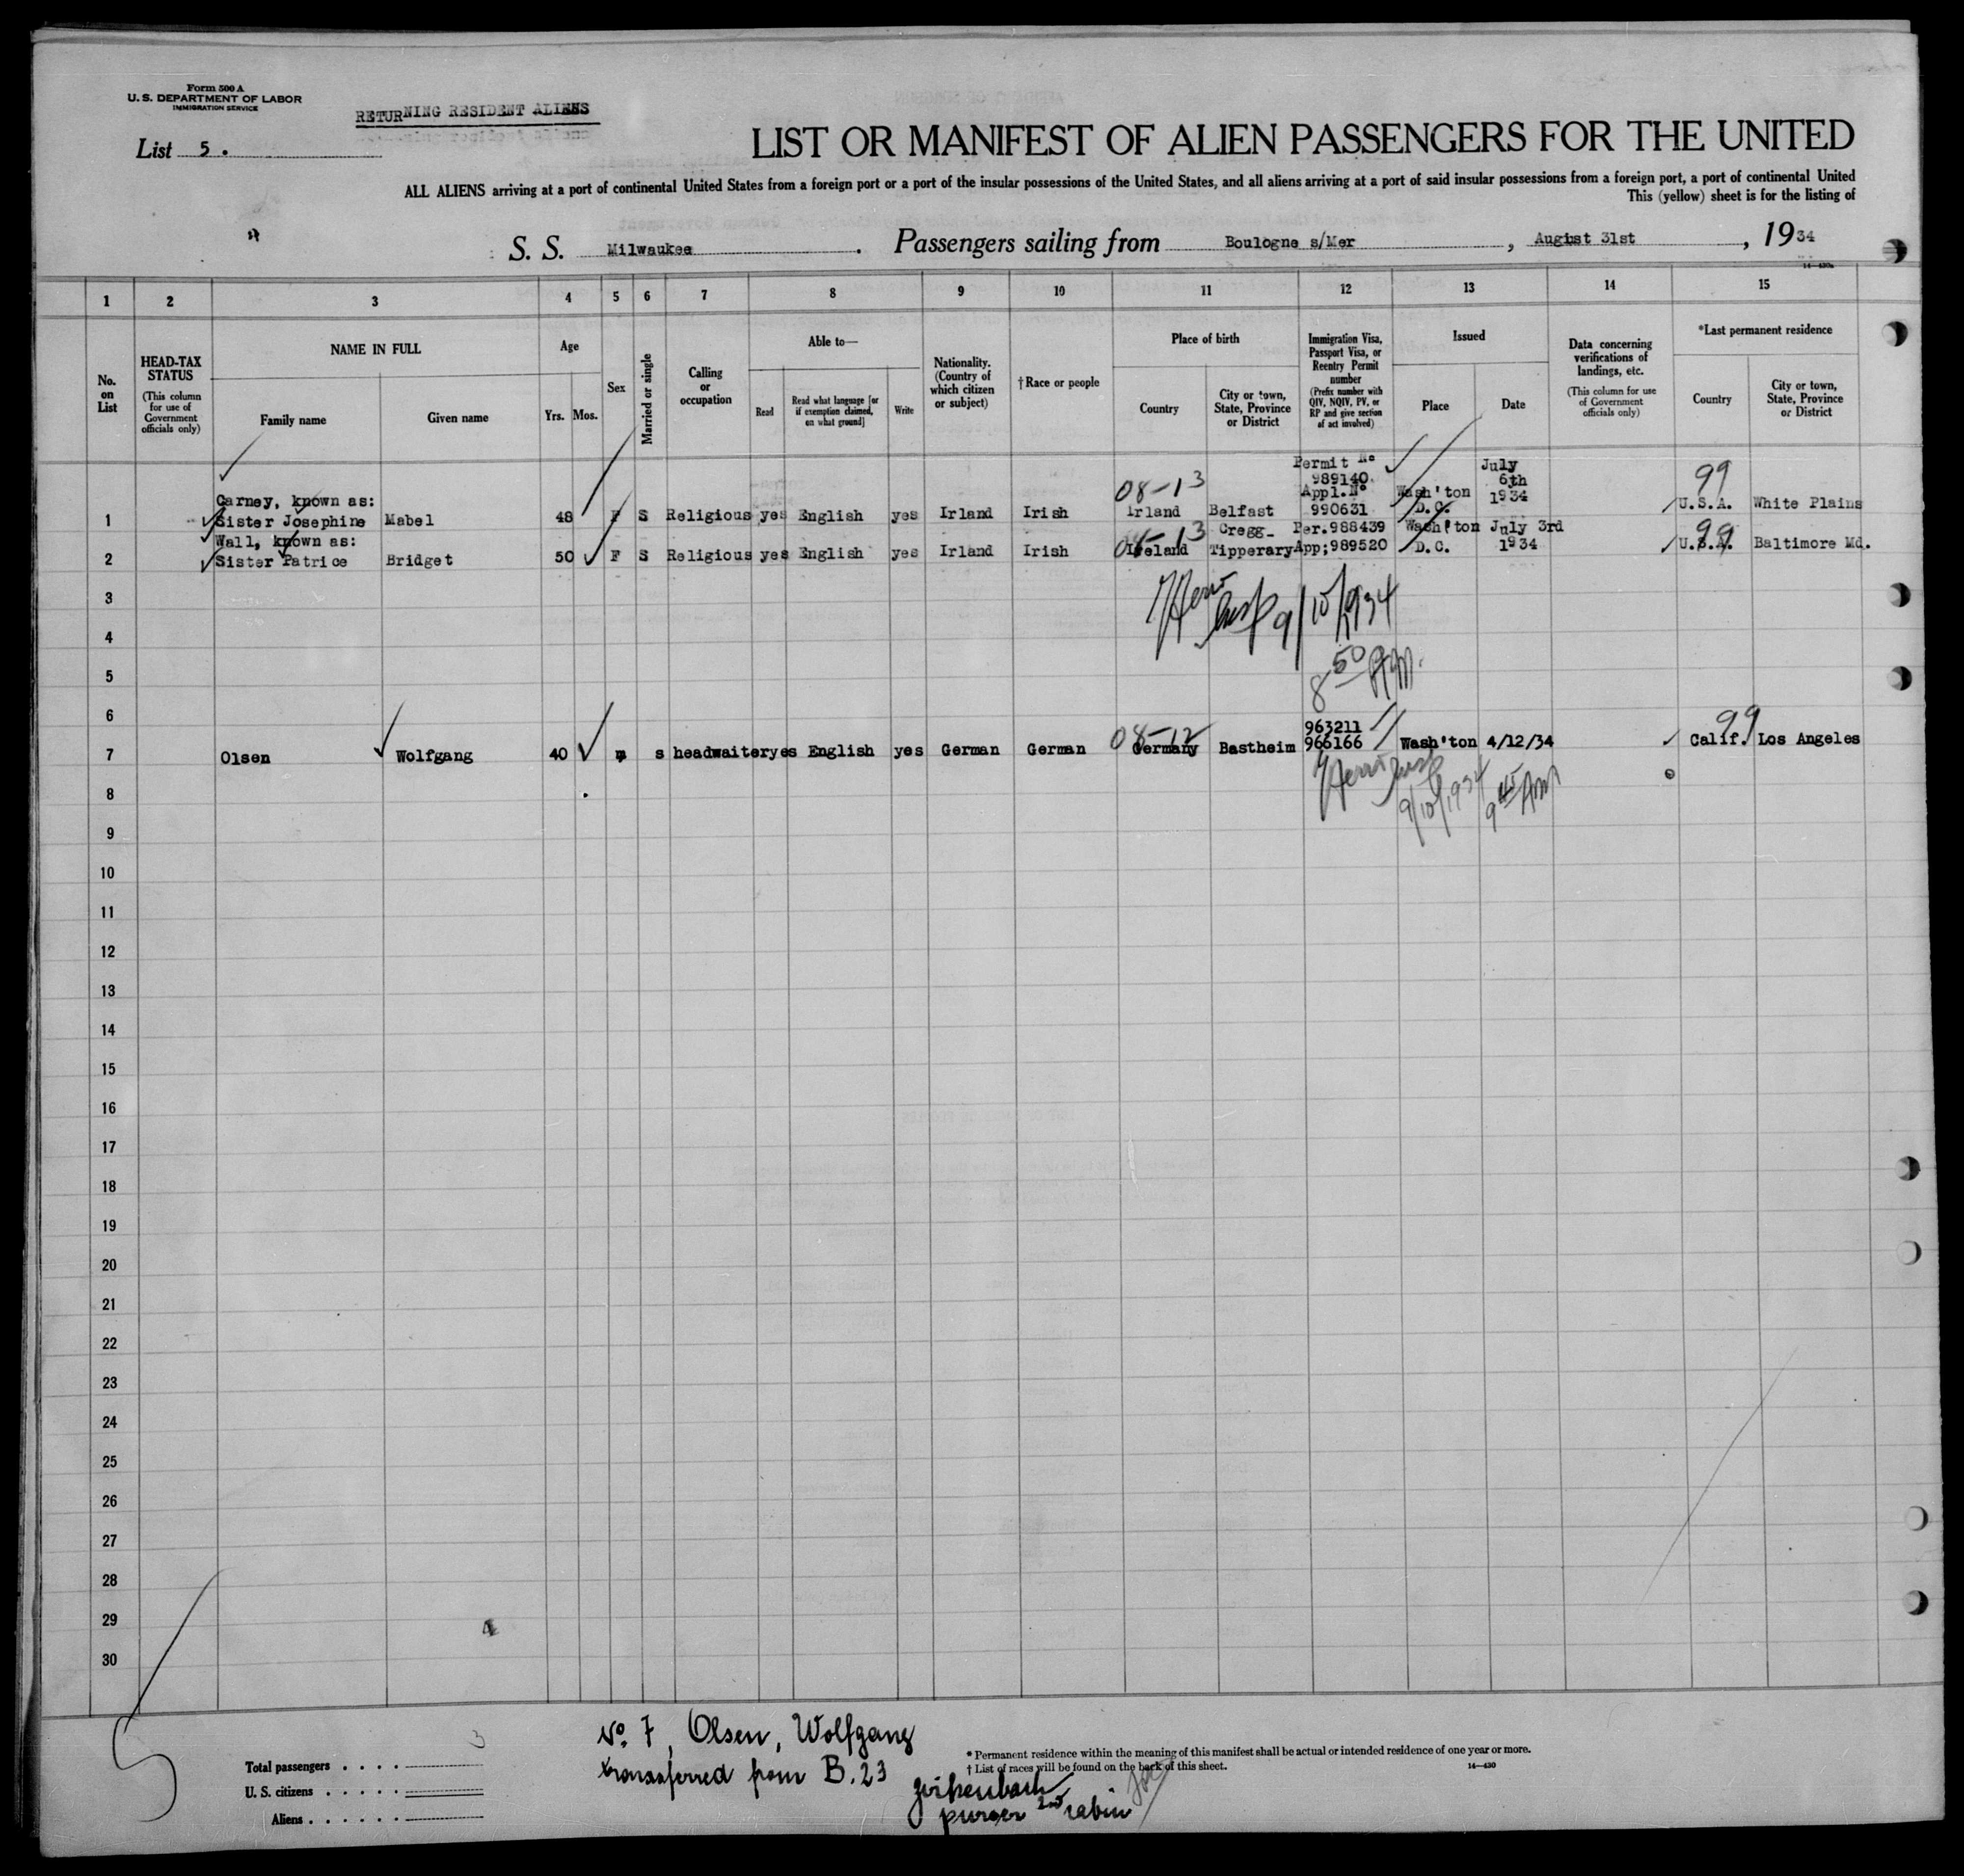 Form 500 A
U. S. DEPARTMENT OF LABOR
IMMIGRATION SERVICE
RETURNING RESIDENT ALIENS
List 5.
LIST OR MANIFEST OF ALIEN PASSENGERS FOR THE UNITED
ALL ALIENS arriving at a port of continental United States from a foreign port or a port of the insular possessions of the United States, and all aliens arriving at a port of said insular possessions from a foreign port, a port of continental United
This (yellow) sheet is for the listing of
S. S. Milwaukee. Passengers sailing from Boulogne s/Mer, August 31st, 1934
14—430a
1 2 3 4 5 6 7 8 9 10 11 12 13 14 15
No. on List
HEAD-TAX STATUS
(This column for use of Government officials only)
NAME IN FULL
Family name
Given name
Age
Yrs.
Mos.
Sex
Married or single
Calling or occupation
Able to—
Read
Read what language [or if exemption claimed, on what ground]
Write
Nationality. (Country of which citizen or subject)
†Race or people
Place of birth
Country
City or town, State, Province or District
Immigration Visa, Passport Visa, or Reentry Permit number
(Prefix number with QIV, NQIV, PV, or RP and give section of act involved)
Issued
Place
Date
Data concerning verifications of landings, etc.
(This column for use of Government officials only)
*Last permanent residence
Country
City or town, State, Province or District
1 Carney, known as: Sister Josephine Mabel 48 F S Religious yes English yes Irland Irish 08-13 Irland Belfast Permit No 989140. Appl.No 990631 Wash'ton D.C. July 6th 1934 99 U.S.A. White Plains
2 Wall, known as: Sister Patrice Bridget 50 F S Religious yes English yes Irland Irish 08-13 Ireland Cregg- Tipperary Per.988439 App;989520 Wash'ton D.C. July 3rd 1934 99 U.S.A. Baltimore Md.
3
9/10/1934
4
5
8 50 AM.
6
7 Olsen Wolfgang 40 m s headwaiter yes English yes German German 08-12 Germany Bastheim 963211 966166 Wash'ton 4/12/34 99 Calif. Los Angeles
8
9/10/1934 9 45 AM
9
10
11
12
13
14
15
16
17
18
19
20
21
22
23
24
25
26
27
28
29
30
No. 7, Olsen, Wolfgang
transferred from B.23
purser 2nd cabin
3
Total passengers
U. S. citizens
Aliens
* Permanent residence within the meaning of this manifest shall be actual or intended residence of one year or more.
† List of races will be found on the back of this sheet.
14—430